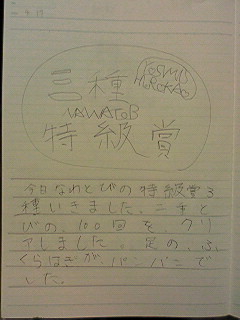 三種
YOSMIS
HUROKAO
NAWATOB
特級賞
今日なわとびの特級賞3
種いきました。二重と
びの、100回を、クリ
アしました。足の、ふ
くらはぎが、パンパンで
した。